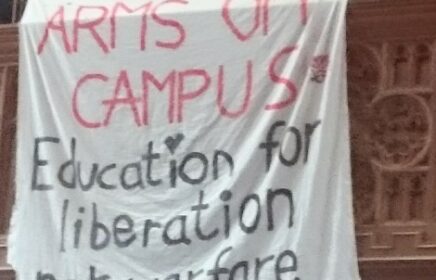 ARMS
CAMPUS
Education for
liberation
not warfare